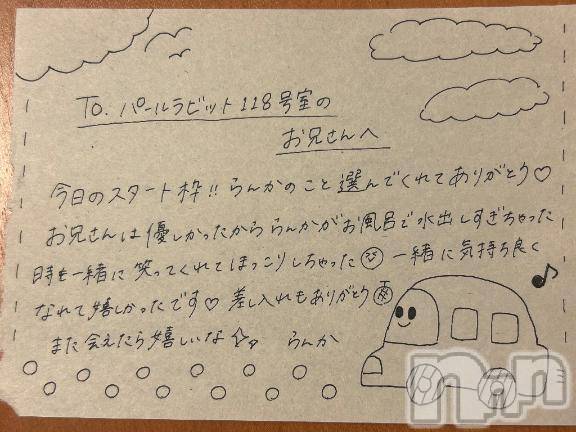 To. パールラビット118号室の
お兄さんへ
今日のスタート枠!! らんかのこと選んでくれてありがとう♡
お兄さんは優しかったかららんかがお風呂で水出しすぎちゃった
時も一緒に笑ってくれてほっこりしちゃった 一緒に気持ち良く
なれて嬉しかったです♡ 差し入れもありがとう
また会えたら嬉しいな☆ らんか
nan